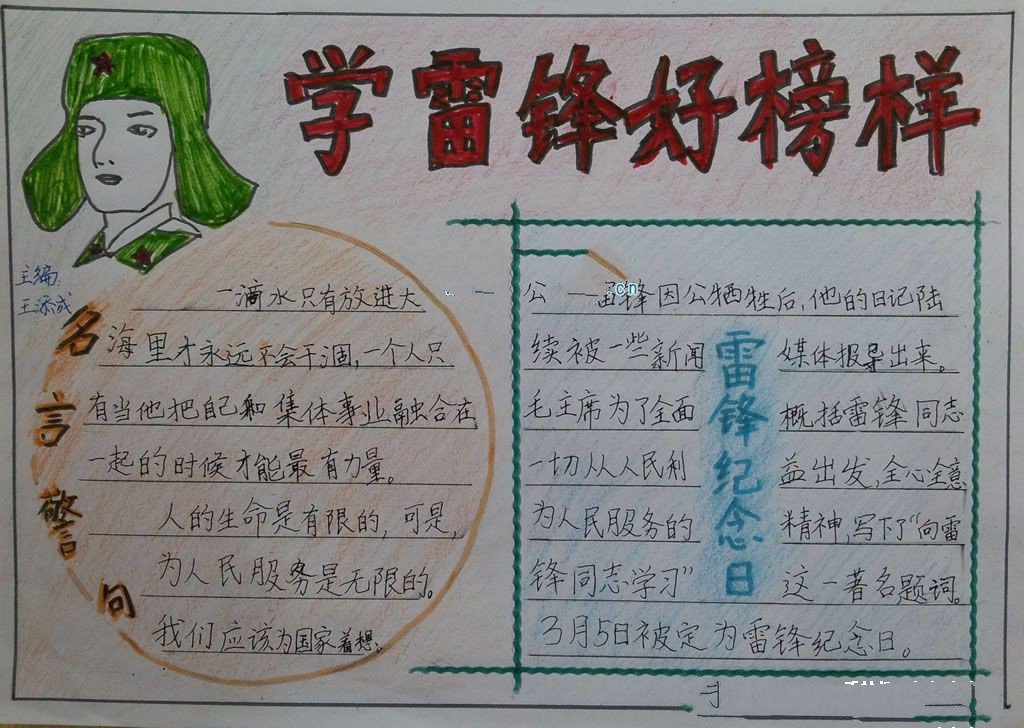 学雷锋好榜样
主编:
王添成
名言警句
一滴水只有放进大
海里才永远不会干涸,一个人只
有当他把自己和集体事业融合在
一起的时候才能最有力量。
人的生命是有限的,可是,
为人民服务是无限的。
我们应该为国家着想。
雷锋纪念日
公 一 雷锋因公牺牲后,他的日记陆
续被一些新闻 媒体报导出来。
毛主席为了全面 概括雷锋同志
一切从人民利 益出发,全心全意
为人民服务的 精神,写下了“向雷
锋同志学习” 这一著名题词。
3月5日被定为雷锋纪念日。
.cn